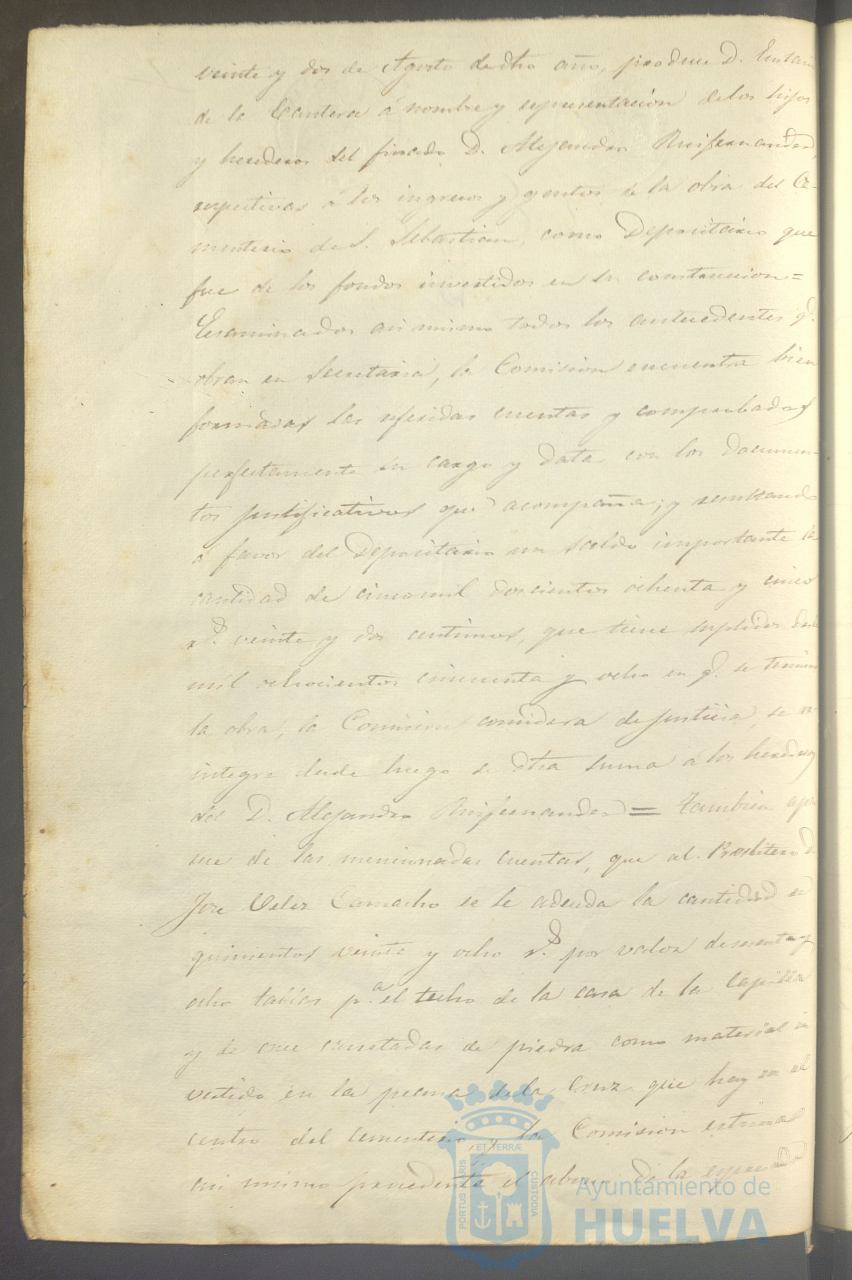 veinte y dos de Agosto de dho año, produce D.
de la Cantera á nombre y representacion de los hijos
y herederos del finado D. Alejandro Ruifernandez,
respectivas á los ingresos y gastos de la obra del Ce-
menterio de S. Sebastian, como Depositario que
fue de los fondos invertidos en su construccion=
Examinados asi mismo todos los antecedentes q.
obran en Secretaria, la Comision encuentra bien
formadas las referidas cuentas y comprobadas
perfectamente su cargo y data con los documen-
tos justificativos que acompaña; y resultando
á favor del Depositario un saldo importante la
cantidad de cinco mil doscientos ochenta y cinco
r.s veinte y dos centimos, que tiene suplidos desde
mil ochocientos cincuenta y ocho en q. se termino
la obra, la Comision considera de justicia, se re-
integre desde luego de dha suma á los herederos
del D. Alejandro Ruifernandez = Tambien apa-
rece de las mencionadas cuentas, que al Presbitero D.
Jose Velez Camacho se le adeuda la cantidad de
quinientos veinte y ocho r.s por valor de sesenta y
ocho p.a el techo de la casa de la Capilla
y de once carretadas de piedra como material in-
vertido en la peana de la Cruz que hay en el
centro del cementerio, y la Comision estima
asi mismo procedente el abono de la espresada
PORTUS MARIS ET TERRÆ CUSTODIA
Ayuntamiento de
HUELVA